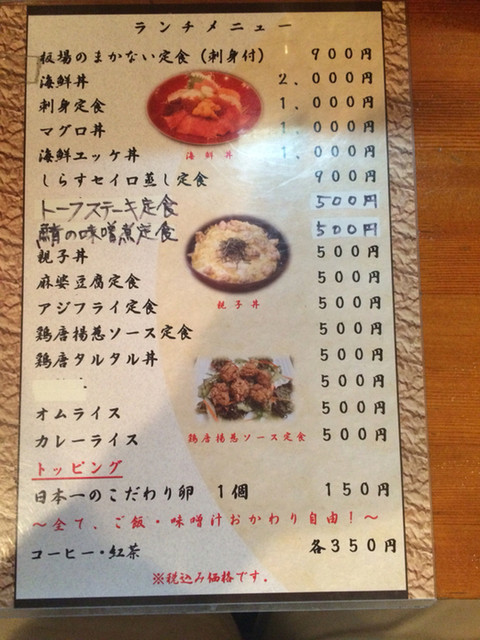 ランチメニュー
板場のまかない定食(刺身付) 900円
海鮮丼 2、000円
刺身定食 1、000円
マグロ丼 1、000円
海鮮ユッケ丼 1、000円
海鮮丼
しらすセイロ蒸し定食 900円
トーフステーキ定食 500円
鯖の味噌煮定食 500円
親子丼 500円
麻婆豆腐定食 500円
アジフライ定食 500円
親子丼
鶏唐揚葱ソース定食 500円
鶏唐タルタル丼 500円
500円
オムライス 500円
カレーライス 500円
鶏唐揚葱ソース定食
トッピング
日本一のこだわり卵 1個 150円
～全て、ご飯・味噌汁おかわり自由!～
コーヒー・紅茶 各350円
※税込み価格です。